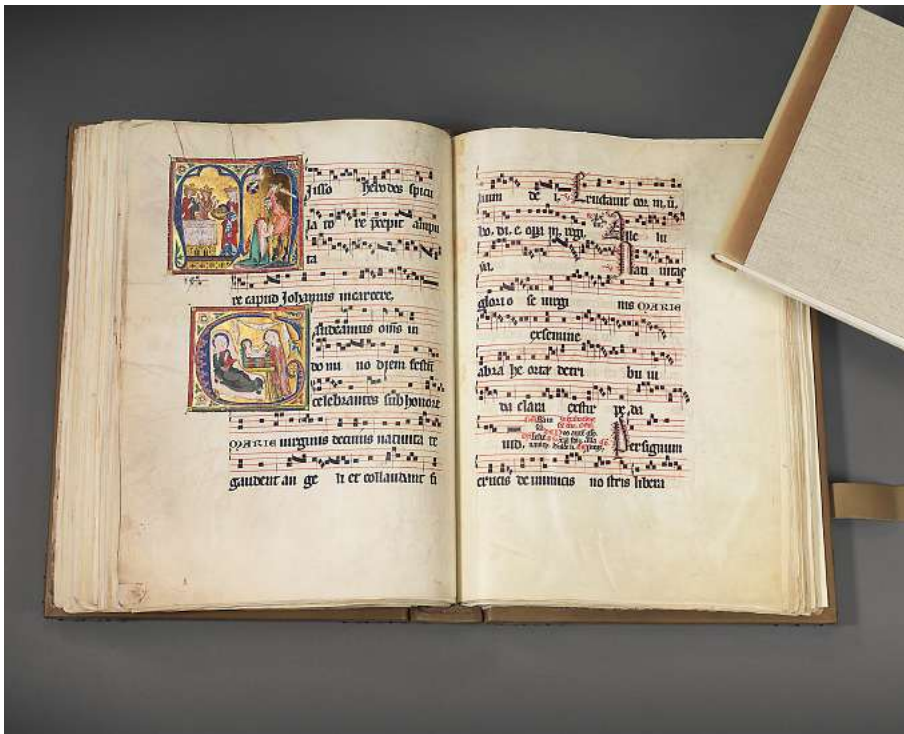 isso herodes spicu
la to re precepit ampu
ta
re capud Johannis incarcere,
audeamus oms in
do mi no diem festū
celebrantes sub honore
MARIE uirginis de cuius natiuita te
gaudent an ge li et collaudant fi
lium de i. Eructauit cor m. ū.
bo. di. c. opa m. regi. Alle lu
ya. Nati uitas
glorio se uirgi nis MARIE
exsemine
abra he orta de tri bu iu
da clara exstir pe da
uid. Per signum
crucis de inimicis no stris libera